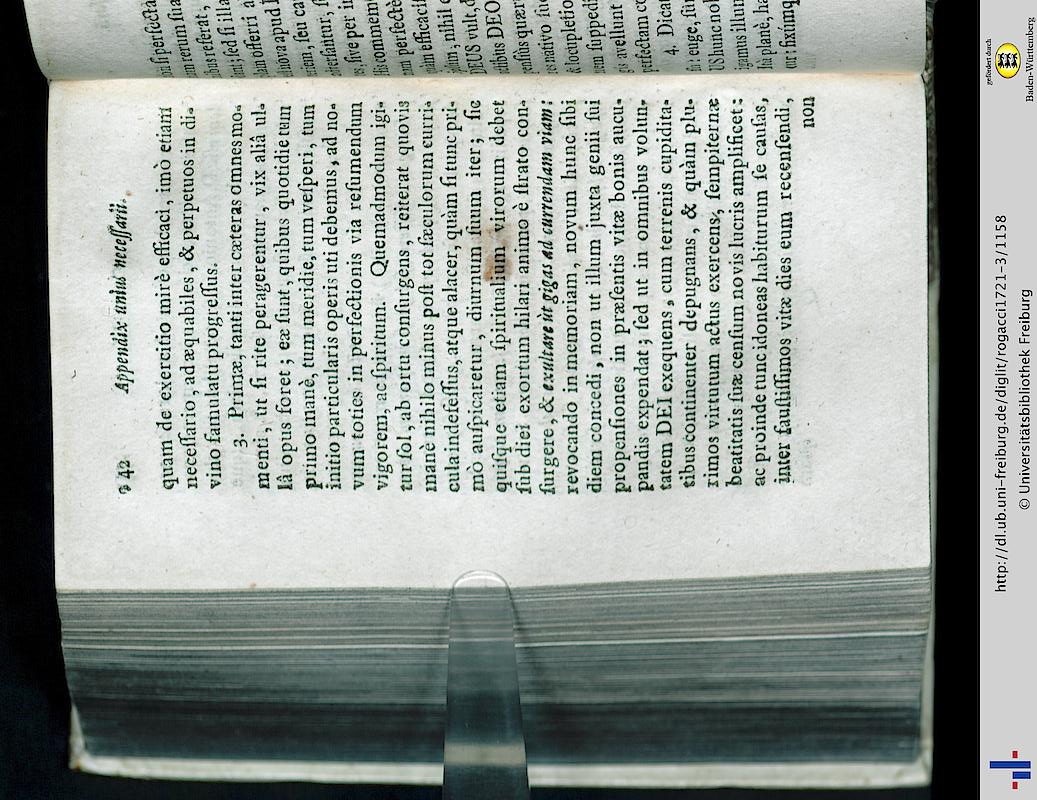 242 Appendix unius necessarii.
quam de exercitio mirè efficaci, imò etiam
necessario, ad æquabiles, & perpetuos in di-
vino famulatu progressus.
3. Primæ, tanti inter cæteras omnes mo-
menti, ut si rite peragerentur, vix aliâ ul-
lâ opus foret; eæ sunt, quibus quotidie tum
primo manè, tum meridie, tum vesperi, tum
initio particularis operis uti debemus, ad no-
vum toties in perfectionis via resumendum
vigorem, ac spiritum. Quemadmodum igi-
tur sol, ab ortu consurgens, reiterat quovis
manè nihilo minus post tot sæculorum curri-
cula indefessus, atque alacer, quàm si tunc pri-
mò auspicaretur, diurnum suum iter; sic
quisque etiam spiritualium virorum debet
sub diei exortum hilari animo è strato con-
surgere, & exultare ut gigas ad currendam viam:
revocando in memoriam, novum hunc sibi
diem concedi, non ut illum juxta genii sui
propensiones in præsentis vitæ bonis aucu-
pandis expendat; sed ut in omnibus volun-
tatem DEI exequens, cum terrenis cupidita-
tibus continenter depugnans, & quàm plu-
rimos virtutum actus exercens, sempiternæ
beatitatis suæ censum novis lucris amplificet:
ac proinde tunc idoneas habiturum se causas,
inter faustissimos vitæ dies eum recensendi,
non
gefördert durch
Baden-Württemberg
http://dl.ub.uni-freiburg.de/diglit/rogacci1721-3/1158
© Universitätsbibliothek Freiburg